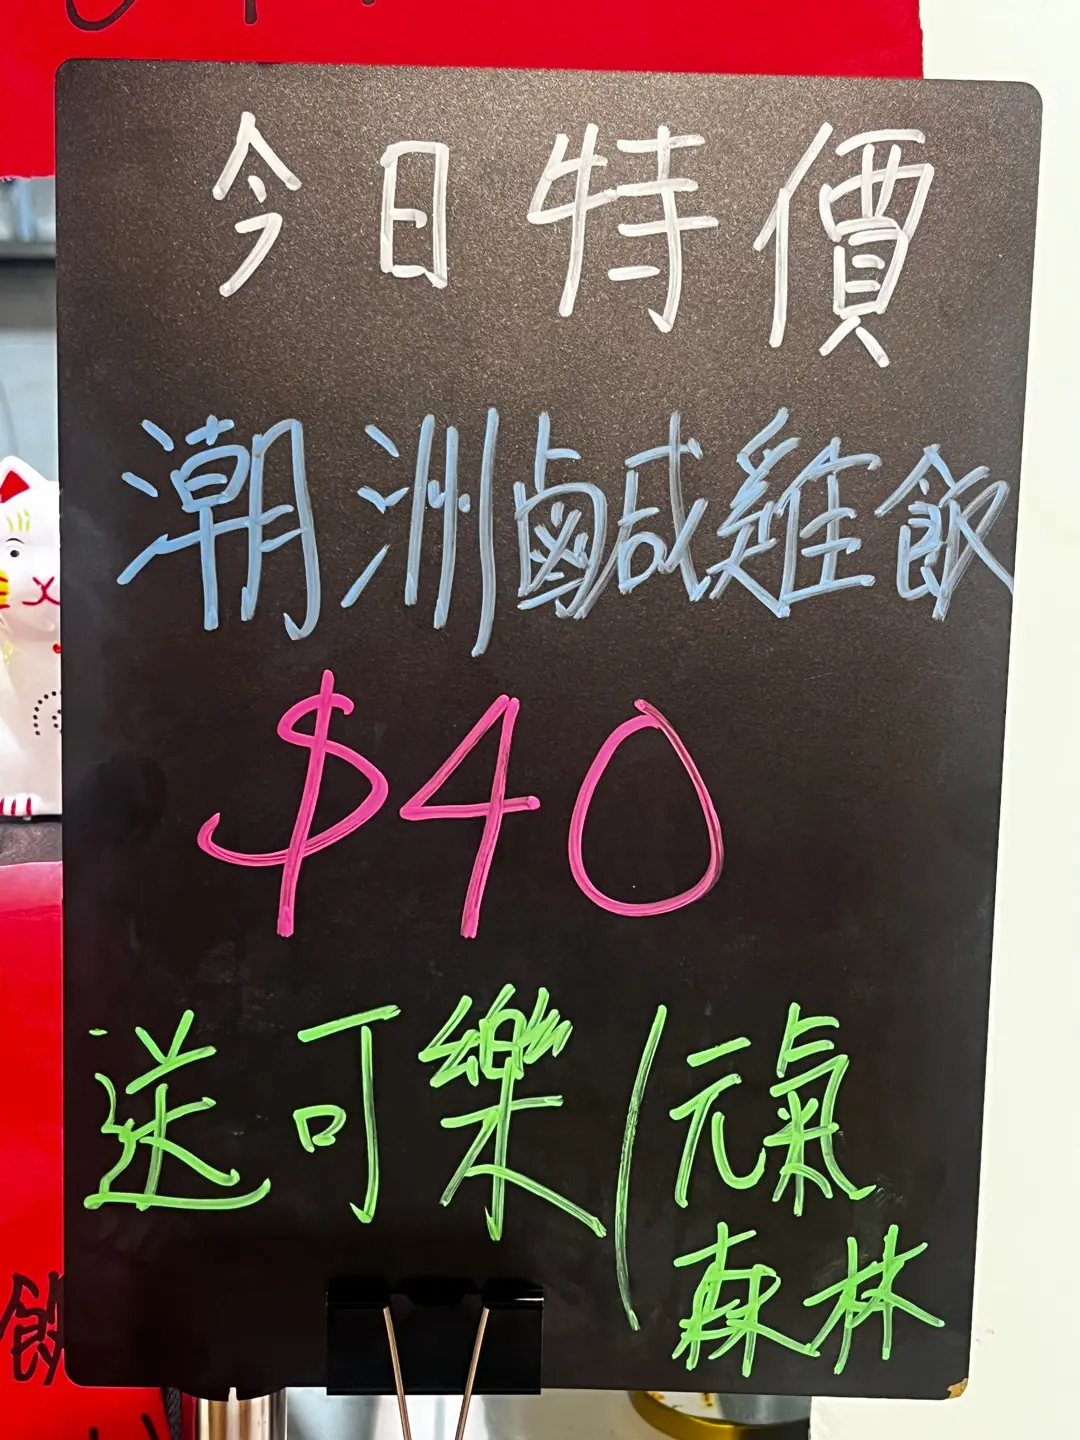 今日特價
潮洲鹹雞飯
$40
送可樂/元氣
森林
飲